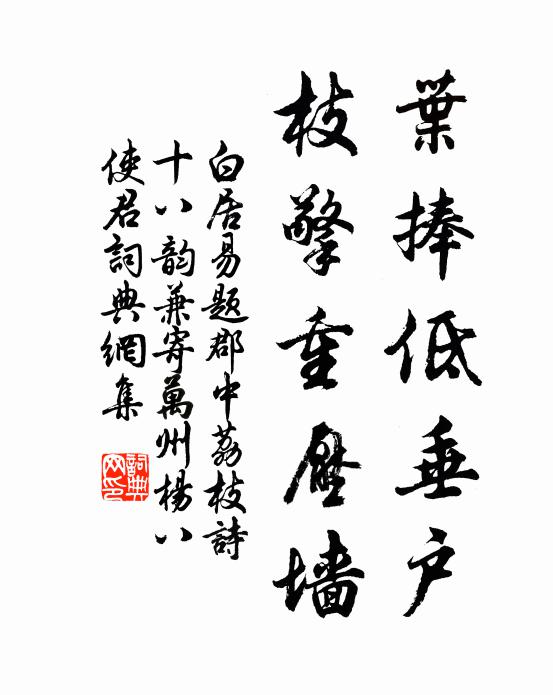 葉捧低垂户
枝擎重壓墙
白居易題郡中荔枝詩
十八韵兼寄萬州楊八
使君詞典網集
詞典
网印